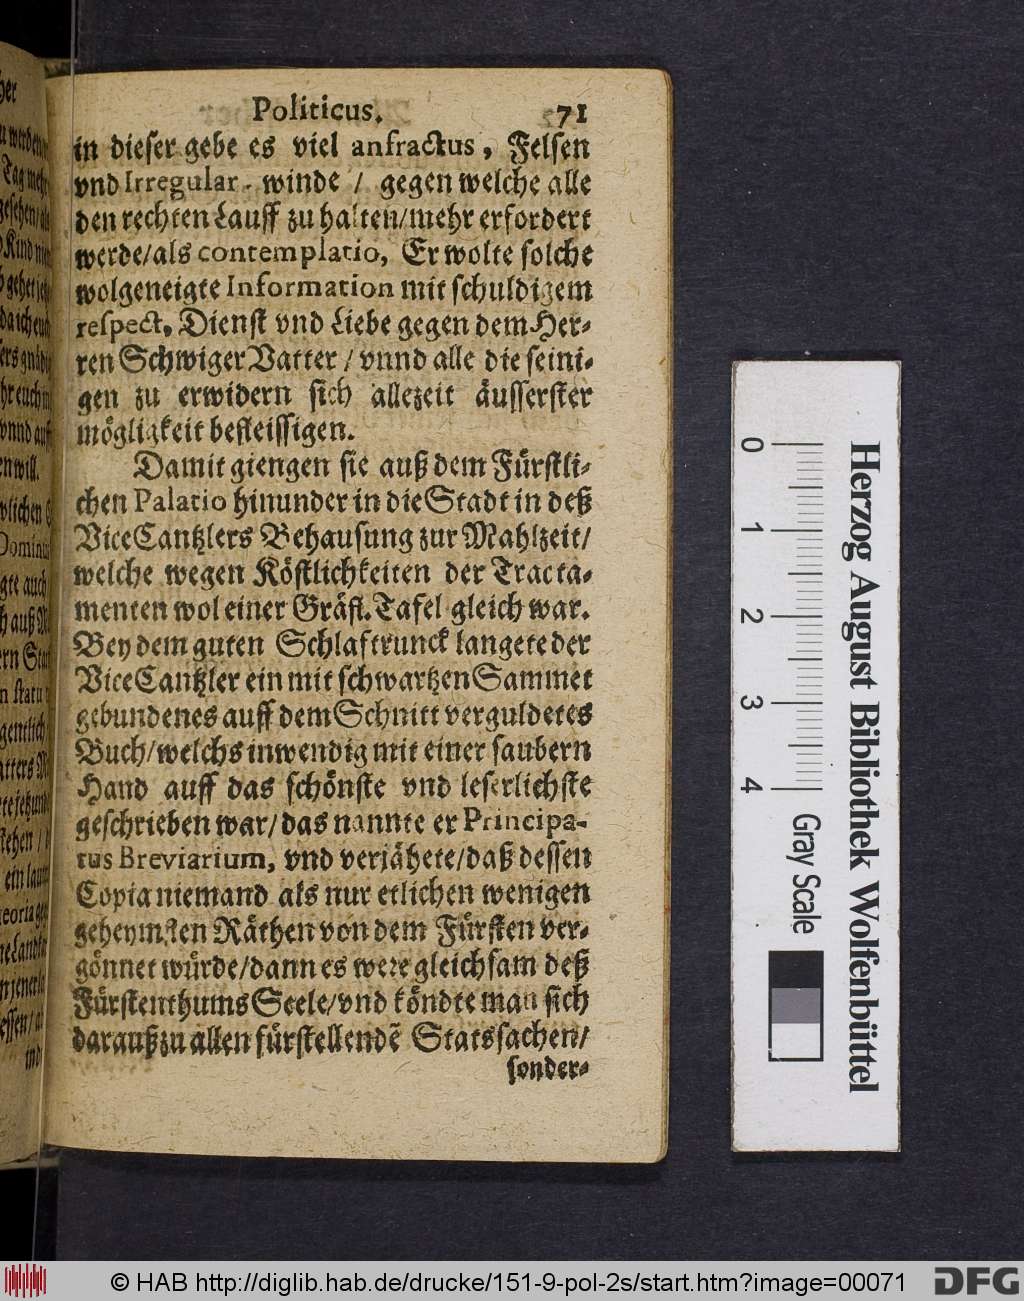 Politicus. 71
in dieser gebe es viel anfractus, Felsen
vnd Irregular-winde / gegen welche alle
den rechten Lauff zu halten/mehr erfordert
werde/als contemplatio, Er wolte solche
wolgeneigte Information mit schuldigem
respect, Dienst vnd Liebe gegen dem Her-
ren Schwiger Vatter / vnnd alle die seini-
gen zu erwidern sich allezeit äusserster
mögligkeit befleissigen.
Damit giengen sie auß dem Fürstli-
chen Palatio hinunder in die Stadt in deß
ViceCantzlers Behausung zur Mahlzeit/
welche wegen Köstlichkeiten der Tracta-
menten wol einer Gräfl. Tafel gleich war.
Bey dem guten Schlaftrunck langete der
ViceCantzler ein mit schwartzen Sammet
gebundenes auff dem Schnitt verguldetes
Buch/welchs inwendig mit einer saubern
Hand auff das schönste vnd leserlichste
geschrieben war/das nannte er Principa-
tus Breviarium, vnd verjähete/daß dessen
Copia niemand als nur etlichen wenigen
geheymsten Räthen von dem Fürsten ver-
gönnet würde/dann es were gleichsam deß
Fürstenthums Seele/vnd köndte man sich
darauß zu allen fürstellendẽ Statssachen/
sonder-
0 1 2 3 4
Gray Scale
Herzog August Bibliothek Wolfenbüttel
© HAB http://diglib.hab.de/drucke/151-9-pol-2s/start.htm?image=00071
DFG